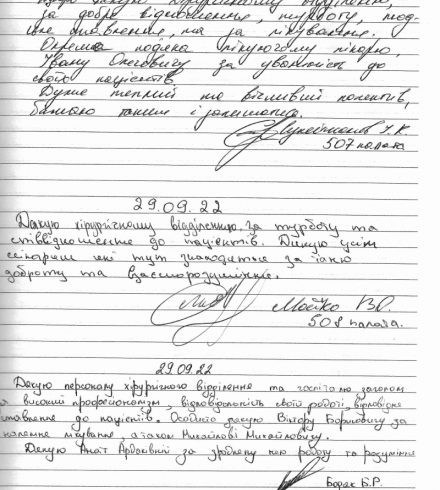 за добре відношення, турботу, люд-
яне ставлення, та за лікування.
Окрема подяка лікуючому лікарю,
Івану Олеговичу за уважність до
своїх пацієнтів.
Дуже теплий та ввічливий колектив,
бажаю
І.К.
507 палата
29.09.22
Дякую хірургічному відділенню за турботу та
співвідношення до пацієнтів. Дякую усім
які тут знаходяться за їхню
доброту та взаєморозуміння.
Мойко В.О.
508 палата.
29.09.22
Дякую персоналу хірургічного відділення та госпіталю загалом
високий професіоналізм, відповідальність своїй роботі, відповідне
ставлення до пацієнтів. Особисто дякую Віктору Борисовичу за
лікування, а також Михайлові Михайловичу.
Дякую за зроблену нею роботу та розуміння
Борак Б.Р.